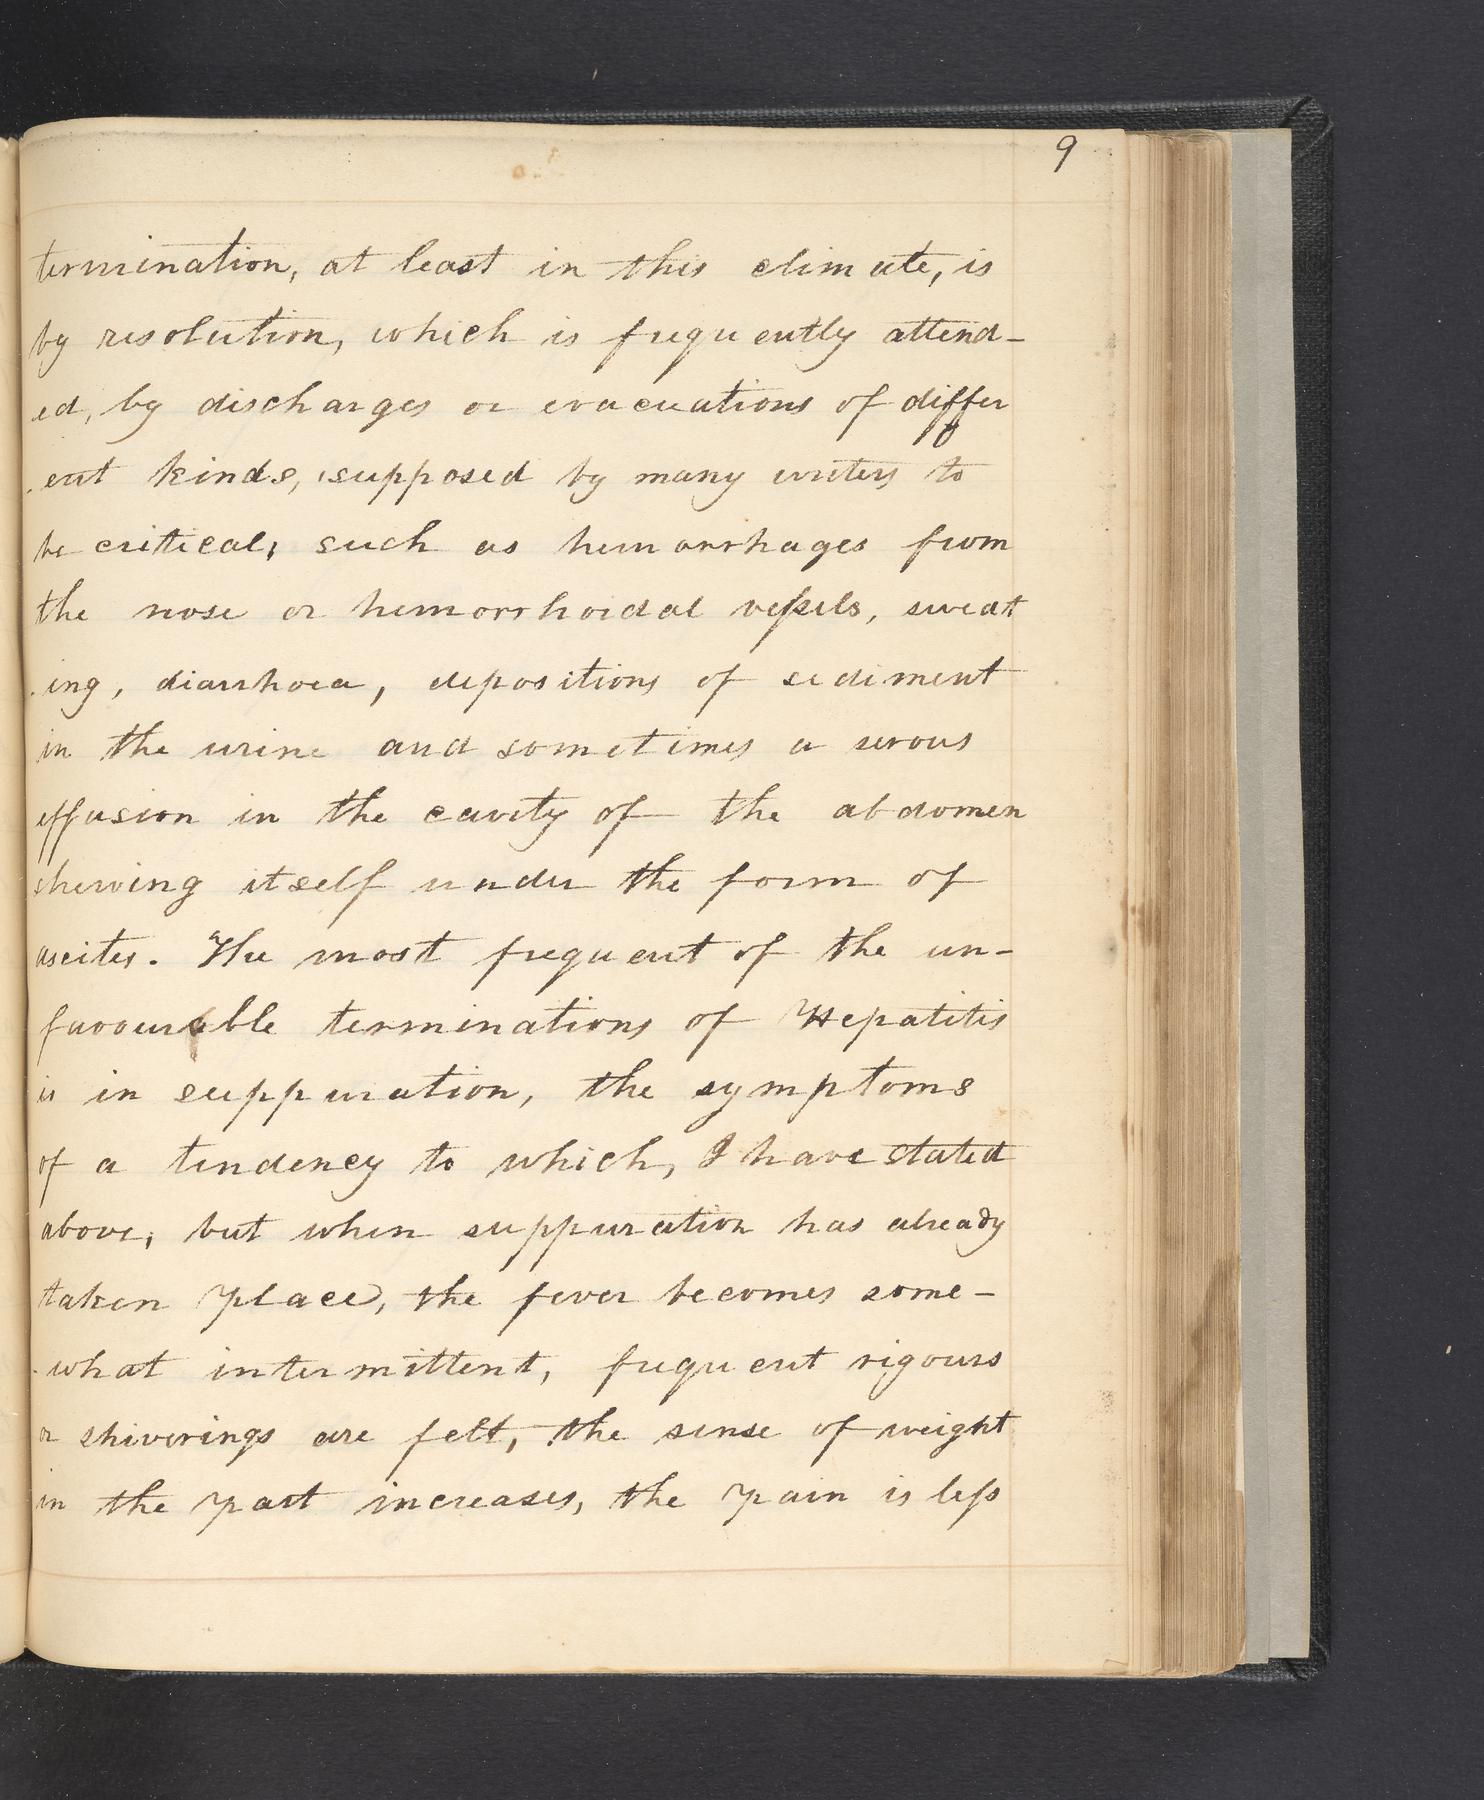 9
termination, at least in this climate, is
by resolution, which is frequently attend-
ed, by discharges or evacuations of differ
-ent kinds, supposed by many writers to
be critical, such as hemorrhages from
the nose or hemorrhoidal veſsels, sweat
-ing, diarrhoea, depositions of sediment
in the urine and sometimes a serous
effusion in the cavity of the abdomen
shewing itself under the form of
ascites. The most frequent of the un-
favourable terminations of Hepatitis
is in suppuration, the symptoms
of a tendency to which, I have stated
above, but when suppuration has already
taken place, the fever becomes some-
-what intermittent, frequent rigours
or shiverings are felt, the sense of weight
in the part increases, the pain is leſs